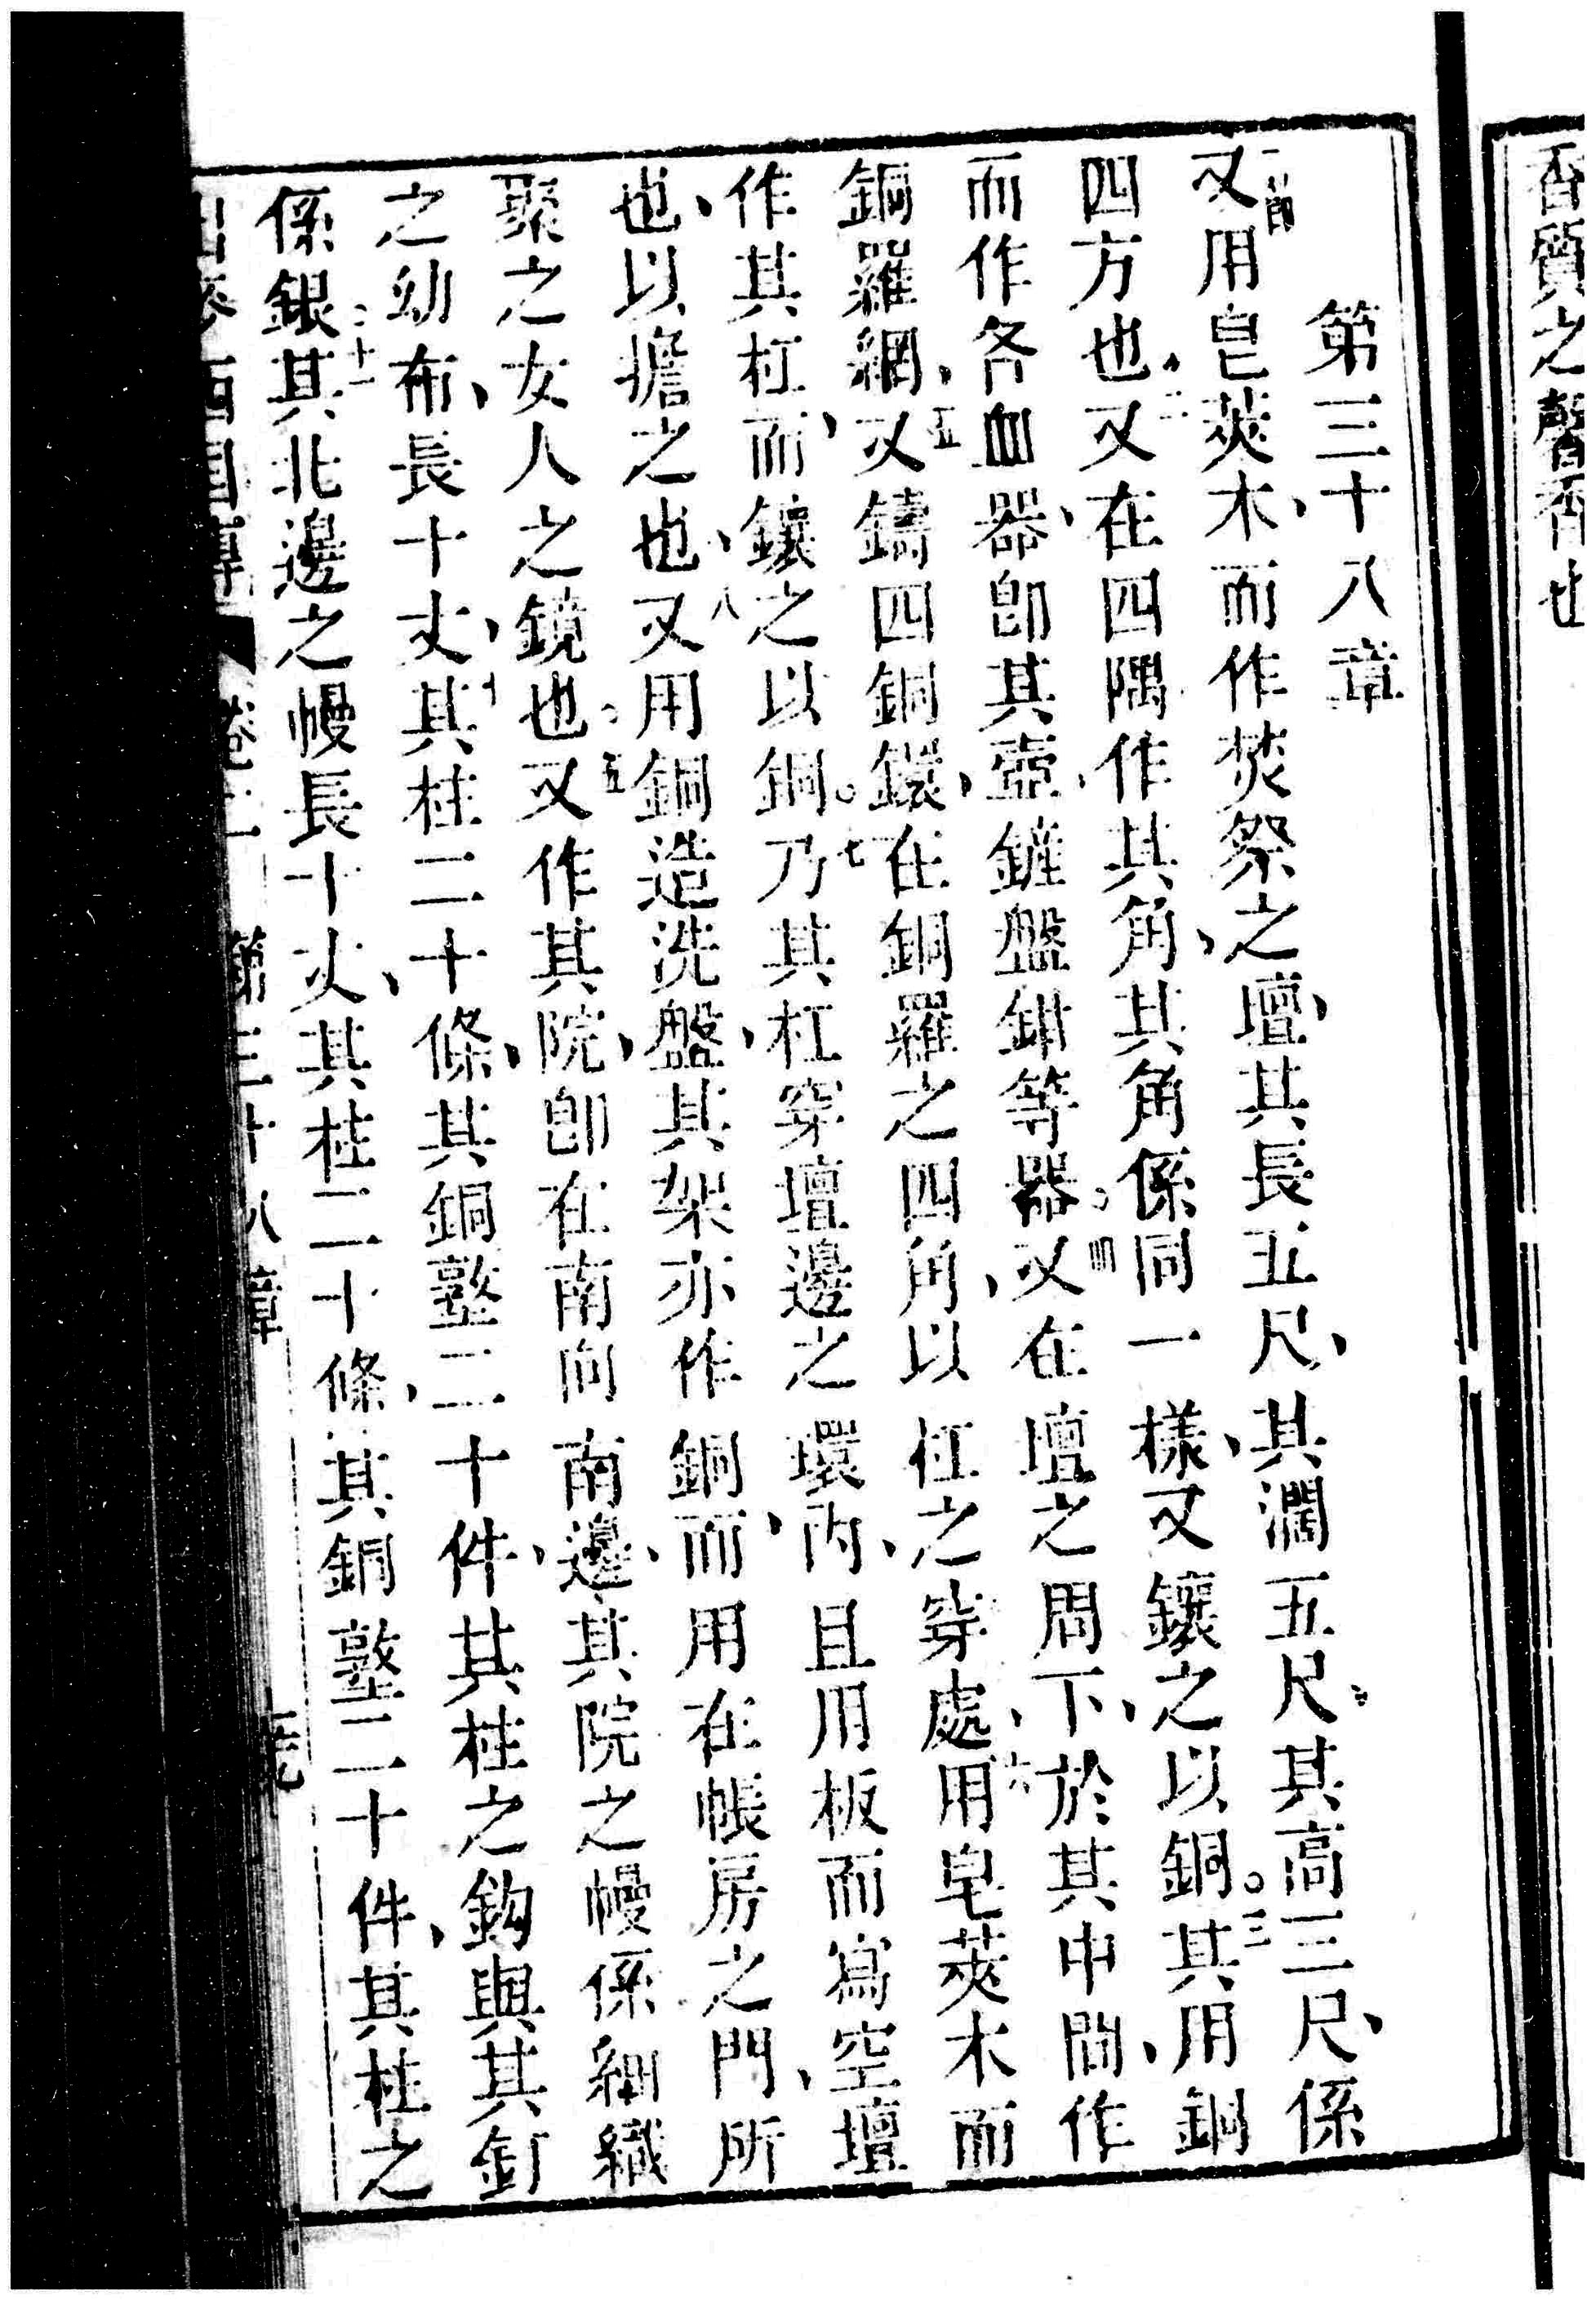 香質之馨香也
第三十八章
一節又用皂莢木、而作焚祭之壇、其長五尺、其濶五尺、其高三尺、係
四方也、二又在四隅作其角、其角係同一樣、又鑲之以銅。三其用銅
而作各血器、卽其壺、鏟盤鉗等器、四又在壇之周下、於其中間、作
銅羅網、五又鑄四銅鐶、在銅羅之四角、以杠之穿處、六用皂莢木而
作其杠、而鑲之以銅。七乃其杠穿壇邊之環內、且用板而寫空壇
也、以擔之也、八又用銅造洗盤、其架亦作銅、而用在帳房之門、所
聚之女人之鏡也。五又作其院、卽在南向南邊、其院之幔係細織
之幼布、長十丈、十其柱二十條、其銅鐜二十件、其柱之鈎與其釘
係銀、二十一其北邊之幔長十丈、其柱二十條、其銅鐜二十件、其柱之
第三十八章